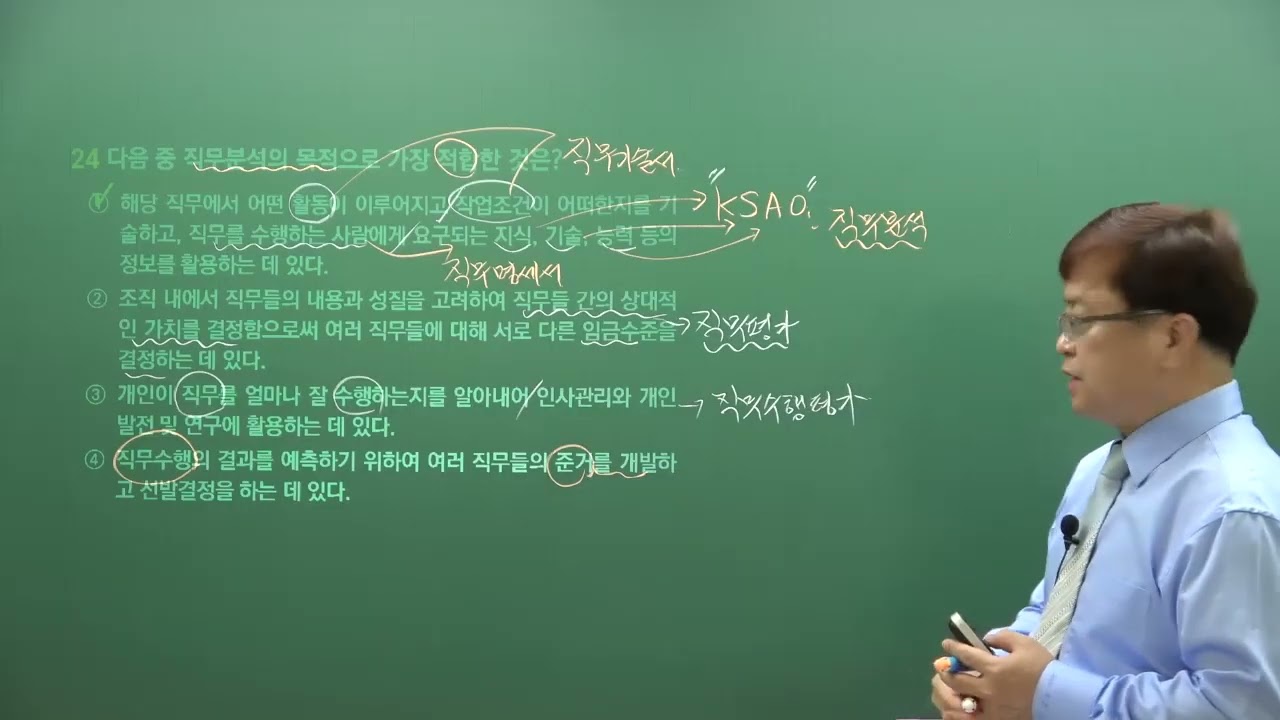 24 다음 중 직무분석의 목적으로 가장 적합한 것은? 직무기술서
① 해당 직무에서 어떤 활동이 이루어지고 작업조건이 어떠한지를 기
"KSAO"
술하고, 직무를 수행하는 사람에게 요구되는 지식, 기술, 능력 등의
직무분석
정보를 활용하는 데 있다.
직무명세서
② 조직 내에서 직무들의 내용과 성질을 고려하여 직무들 간의 상대적
인 가치를 결정함으로써 여러 직무들에 대해 서로 다른 임금수준을 → 직무평가
결정하는 데 있다.
③ 개인이 직무를 얼마나 잘 수행하는지를 알아내어 인사관리와 개인 → 직무수행평가
발전 및 연구에 활용하는 데 있다.
④ 직무수행의 결과를 예측하기 위하여 여러 직무들의 준거를 개발하
고 선발결정을 하는 데 있다.